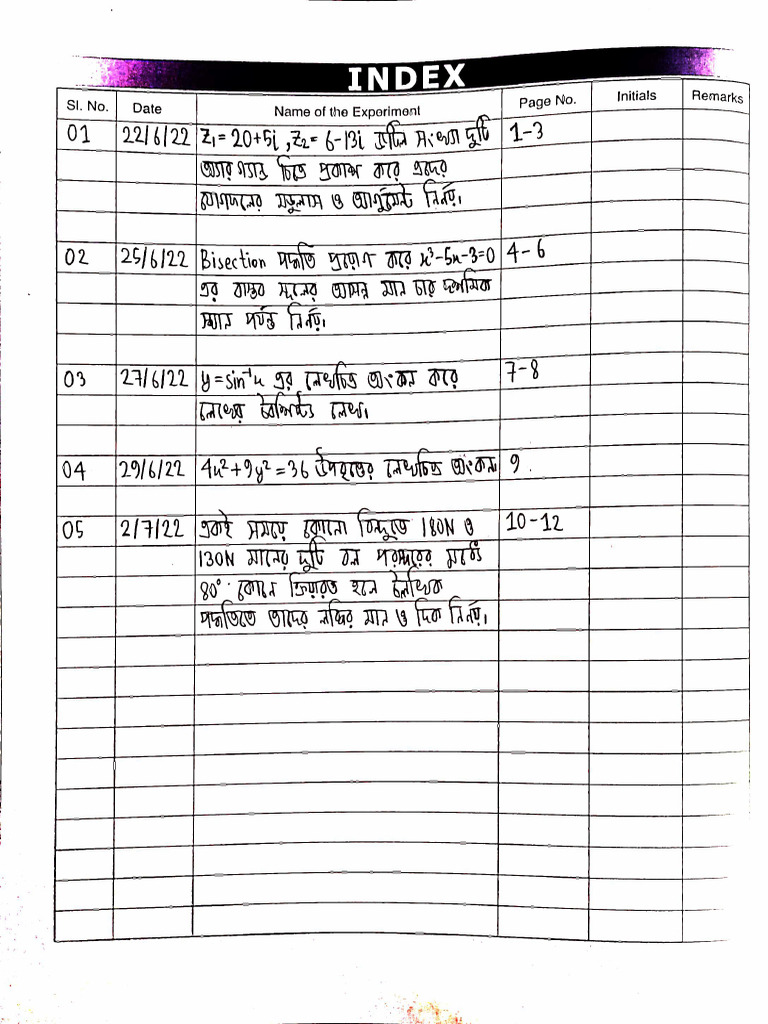 INDEX
Sl. No. Date Name of the Experiment Page No. Initials Remarks
01 22/6/22 z₁ = 20+5i , z₂ = 6-13i জটিল সংখ্যা দুটি 1-3
আরগ্যান্ড চিত্রে প্রকাশ করে এদের
যোগফলের মডুলাস ও আর্গুমেন্ট নির্ণয়।
02 25/6/22 Bisection পদ্ধতি প্রয়োগ করে x³-5x-3=0 4-6
এর বাস্তব মূলের আসন্ন মান চার দশমিক
স্থান পর্যন্ত নির্ণয়।
03 27/6/22 y = sin⁻¹x এর লেখচিত্র অংকন করে 7-8
লেখের বৈশিষ্ট্য লেখ।
04 29/6/22 4x²+9y² = 36 উপবৃত্তের লেখচিত্র অংকন 9.
05 2/7/22 একই সময়ে কোনো বিন্দুতে 180N ও 10-12
130N মানের দুটি বল পরস্পরের মধ্যে
80° কোনে ক্রিয়ারত হলে লৈখিক
পদ্ধতিতে তাদের লব্ধির মান ও দিক নির্ণয়।